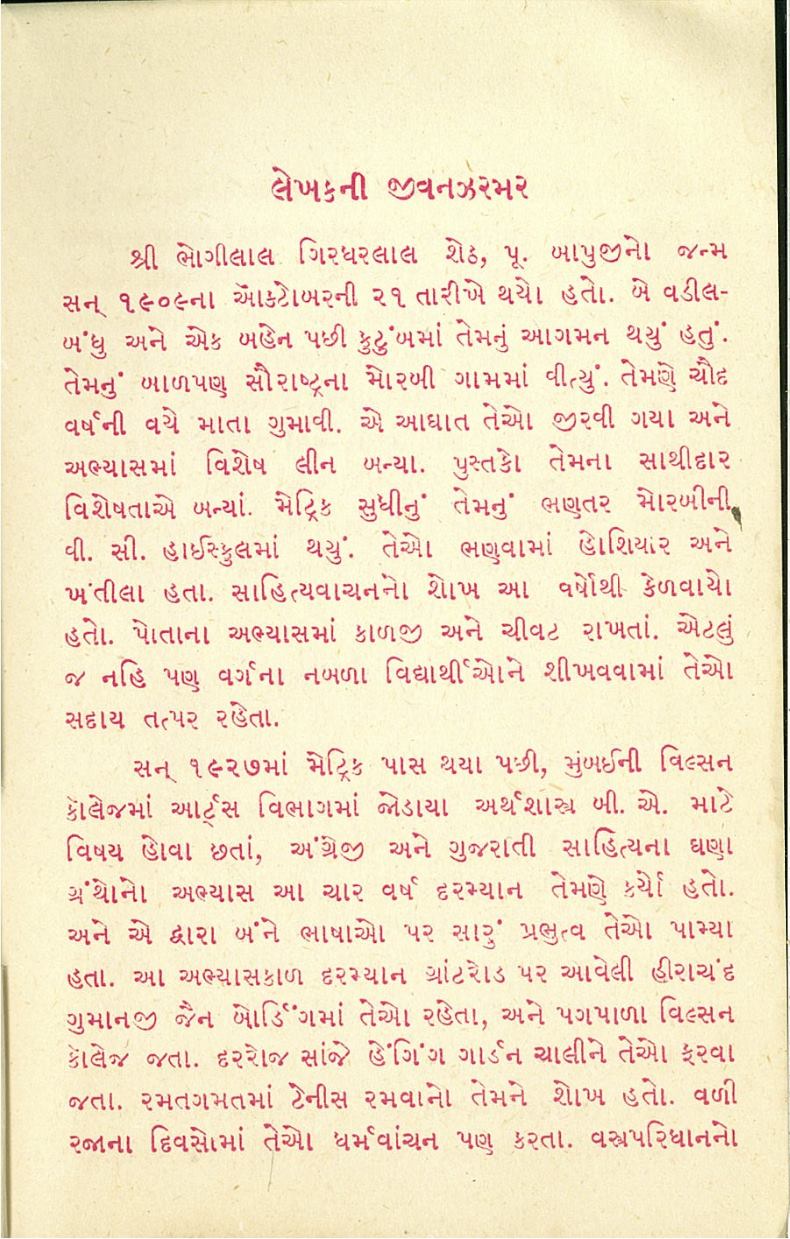 લેખકની જીવનઝરમર
શ્રી ભોગીલાલ ગિરધરલાલ શેઠ, પૂ. બાપુજીનો જન્મ
સન્ ૧૯૦૯ના ઑકટોબરની ૨૧ તારીખે થયો હતો. બે વડીલ-
બંધુ અને એક બહેન પછી કુટુંબમાં તેમનું આગમન થયું હતું.
તેમનું બાળપણ સૌરાષ્ટ્રના મોરબી ગામમાં વીત્યું. તેમણે ચૌદ
વર્ષની વયે માતા ગુમાવી. એ આઘાત તેઓ જીરવી ગયા અને
અભ્યાસમાં વિશેષ લીન બન્યા. પુસ્તકો તેમના સાથીદાર
વિશેષતાએ બન્યાં. મૈટ્રિક સુધીનું તેમનું ભણતર મોરબીની
વી. સી. હાઈસ્કુલમાં થયું. તેઓ ભણવામાં હોશિયાર અને
ખંતીલા હતા. સાહિત્યવાચનનો શોખ આ વર્ષોથી કેળવાયો
હતો. પોતાના અભ્યાસમાં કાળજી અને ચીવટ રાખતાં. એટલું
જ નહિ પણ વર્ગના નબળા વિદ્યાર્થીઓને શીખવવામાં તેઓ
સદાય તત્પર રહેતા.
સન્ ૧૯૨૭માં મૈટ્રિક પાસ થયા પછી, મુંબઈની વિલ્સન
કૉલેજમાં આર્ટ્સ વિભાગમાં જોડાયા અર્થશાસ્ત્ર બી. એ. માટે
વિષય હોવા છતાં, અંગ્રેજી અને ગુજરાતી સાહિત્યના ઘણા
ગ્રંથોનો અભ્યાસ આ ચાર વર્ષ દરમ્યાન તેમણે કર્યો હતો.
અને એ દ્વારા બંને ભાષાઓ પર સારું પ્રભુત્વ તેઓ પામ્યા
હતા. આ અભ્યાસકાળ દરમ્યાન ગ્રાંટરોડ પર આવેલી હીરાચંદ
ગુમાનજી જૈન બોર્ડિંગમાં તેઓ રહેતા, અને પગપાળા વિલ્સન
કૉલેજ જતા. દરરોજ સાંજે હેંગિંગ ગાર્ડન ચાલીને તેઓ ફરવા
જતા. રમતગમતમાં ટેનીસ રમવાનો તેમને શોખ હતો. વળી
રજાના દિવસોમાં તેઓ ધર્મવાંચન પણ કરતા. વસ્ત્રપરિધાનનો